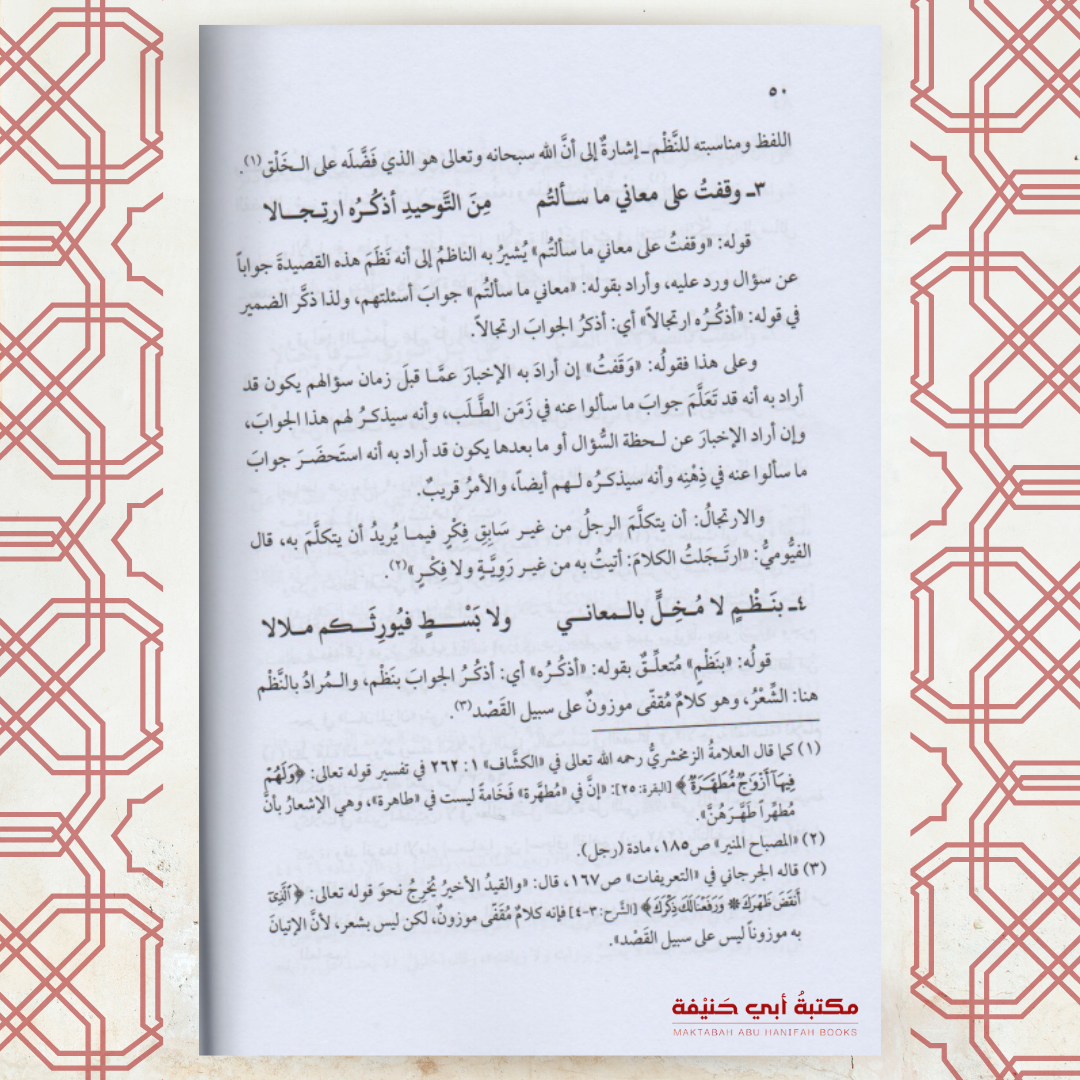 ٥٠
اللفظ ومناسبته للنَّظْم ـ إشارةٌ إلى أنَّ الله سبحانه وتعالى هو الذي فَضَّلَه على الـخَلْق(١).
٣ـ وقفتُ على معاني ما سـألتُم مِنَ التَّوحيدِ أذكُـرُه ارتِـجـالا
قوله: «وقفتُ على معاني ما سألتُم» يُشيرُ به الناظمُ إلى أنه نَظَمَ هذه القصيدةَ جواباً
عن سؤال ورد عليه، وأراد بقوله: «معاني ما سألتُم» جوابَ أسئلتهم، ولذا ذكَّر الضمير
في قوله: «أذكُـرُه ارتجالاً» أي: أذكرُ الجوابَ ارتجالاً.
وعلى هذا فقولُه: «وَقَفتُ» إن أرادَ به الإخبارَ عمَّـا قبلَ زمان سؤالهم يكون قد
أراد به أنه قد تَعَلَّمَ جوابَ ما سألوا عنه في زَمَن الطَّـلَب، وأنه سيذكـرُ لهم هذا الجوابَ،
وإن أراد الإخبارَ عن لـحظة السُّؤال أو ما بعدها يكون قد أراد به أنه استَحضَـرَ جوابَ
ما سألوا عنه في ذِهْنِه وأنه سيذكـرُه لـهم أيضاً، والأمرُ قريبٌ.
والارتجالُ: أن يتكلَّمَ الرجلُ من غيـر سَابِقِ فِكْرٍ فيمـا يُريدُ أن يتكلَّمَ به، قال
الفيُّوميُّ: «ارتـجَلتُ الكلامَ: أتيتُ به من غيـر رَوِيَّـةٍ ولا فِكْـرٍ»(٢).
٤ـ بنَـظْـمٍ لا مُـخِلٍّ بالـمعانـي ولا بَسْـــطٍ فيُورِثَـكم مـلالا
قولُه: «بنَظْمٍ» مُتعلِّـقٌ بقوله: «أذكُـرُه» أي: أذكُرُ الجوابَ بنَظْم، والـمُرادُ بالنَّظْم
هنا: الشِّعْرُ، وهو كلامٌ مُقفّى موزونٌ على سبيل القَصْد(٣).
(١) كما قال العلامةُ الزمخشريُّ رحمه الله تعالى في «الكشَّاف» ١: ٢٦٢ في تفسير قوله تعالى: ﴿وَلَهُمْ
فِيهَآ أَزْوَٰجٌ مُّطَهَّـرَةٌ﴾ [البقرة: ٢٥]: «إنَّ في «مُطهَّرة» فَخَامةً ليست في «طاهرة»، وهي الإشعارُ بأنَّ
مُطهِّراً طَهَّـرَهُنَّ».
(٢) «المصباح المنير» ص١٨٥، مادة (رجل).
(٣) قاله الجرجاني في «التعريفات» ص١٦٧، قال: «والقيدُ الأخيرُ يُخرِجُ نحوَ قوله تعالى: ﴿ٱلَّذِىٓ
أَنقَضَ ظَهْرَكَ * وَرَفَعْنَا لَكَ ذِكْرَكَ﴾ [الشرح: ٣-٤] فإنه كلامٌ مُقَفّى موزونٌ، لكن ليس بشعر، لأنَّ الإتيانَ
به موزوناً ليس على سبيل القَصْد».
مكتبةُ أبي حَنيْفة
MAKTABAH ABU HANIFAH BOOKS